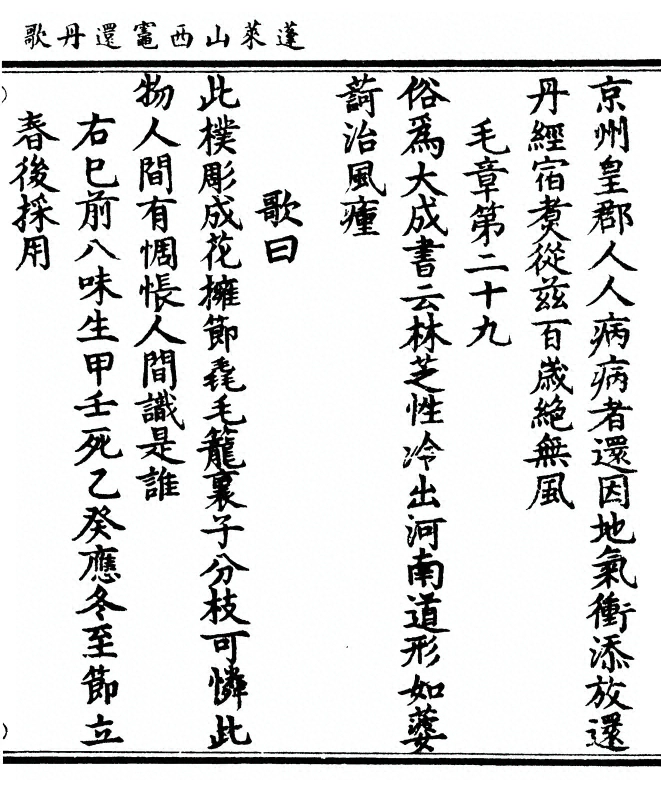 蓬萊山西竈還丹歌
京州皇郡人人病病者還因地氣衝添放還
丹經宿煑從茲百歲絶無風
毛章第二十九
俗爲大成書云林芝性冷出河南道形如蔞
蒿治風瘇
歌曰
此樸彫成花擁節毳毛籠裏子分枝可憐此
物人間有惆悵人間識是誰
右巳前八味生甲壬死乙癸應冬至節立
春後採用